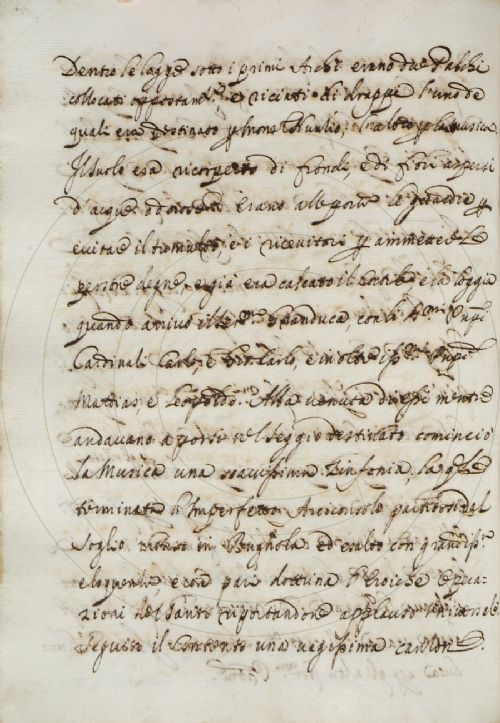 Dentro le logge sotto i primi Archi erano due Palchi
collocati oppostam.te e ricciati di drappi l'uno de
quali era destinato p Mons.r Nunzio; l'altro p la musica
Il suolo era ricoperto di fronde e di fiori aspersi
d'acque odorose erano alle porte le guardie p
evitare il tumulto, e i ricevitori p ammettere le
persone degne, e già era calcato il Cortile e la loggia
quando arrivò il Ser.mo Granduca, con li Ser.mi Prnpi
Cardinali Carlo, e Gio: Carlo, e inoltre i Prnpi
Mattias, e Leopoldo. Alla venuta di essi mentre
andavano a porsi nel seggio destinato cominciò
la Musica una soavissima Sinfonia, la qle
terminata l'Imperfetto Arciconsolo partitosi dal
soglio montò in Bugnola ed esaltò con grandiss.a
eloquenza, e con pari dottrina l'Eroiche
azioni del Santo riportandone applauso universale
Seguitò il Contento una vaghissima canzone.